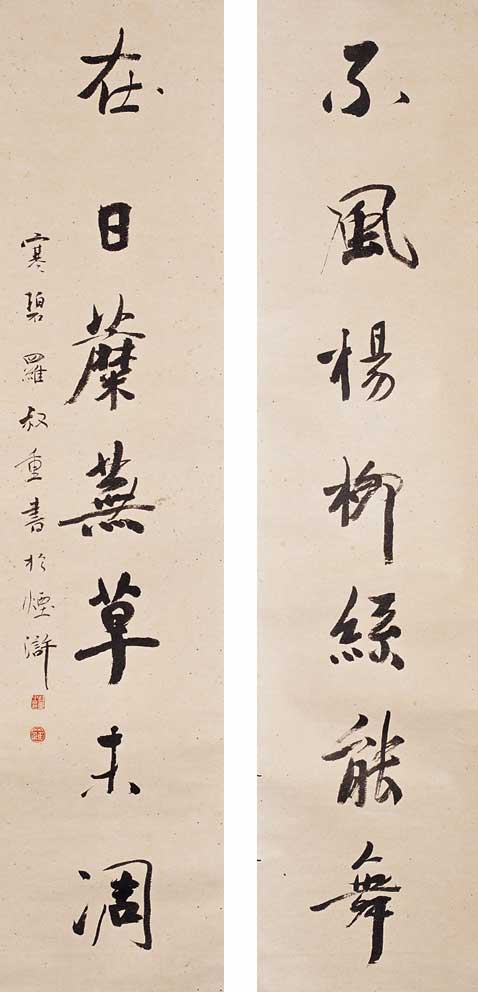 不風楊柳絲能舞
在日蘼蕪草未凋
寒碧羅叔重書於煙滸